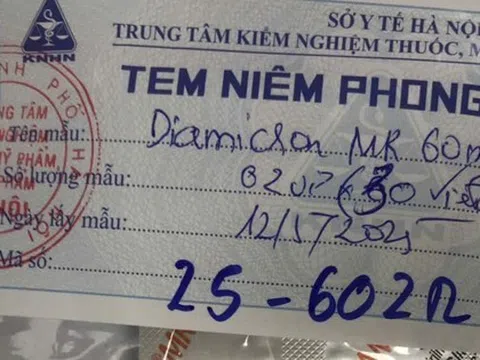 SỞ Y TẾ HÀ NỘ
TRUNG TÂM KIỂM NGHIỆM THUỐC, M
KNHN
TEM NIÊM PHONG
Tên mẫu: Diamicron MR 60m
Số lượng mẫu: 02 x 30 Viê
Ngày lấy mẫu: 12/5/2025
Mã số: 25-602
NH PHỐ H
NG TÂM
Ỹ PHẨM
PHẨM
NỘI